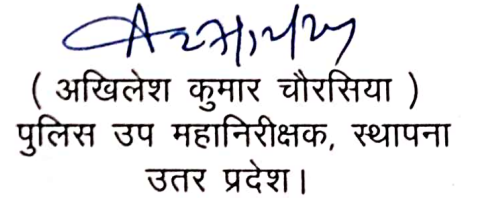 ( अखिलेश कुमार चौरसिया )
पुलिस उप महानिरीक्षक, स्थापना
उतर प्रदेश।